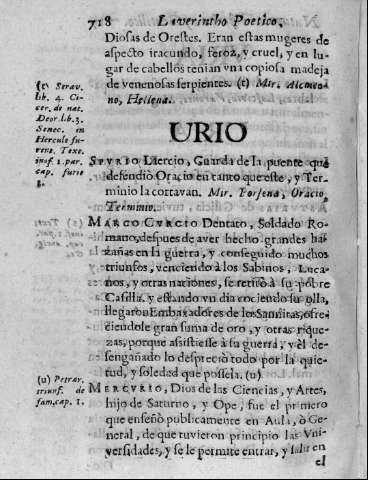 718 Laverintho Poetico.
Diosas de Orestes. Eran estas mugeres de
aspecto iracundo, feroz, y cruel, y en lu-
gar de cabellos tenian vna copiosa madeja
de venenosas serpientes. (t) Mir. Alcmeo
no, Hellena.
(t) Serav.
lib. 4. Ci-
cer. de nat.
Deor. lib. 3.
Senec. in
Hercule fu-
rens. Texe.
inof. 1. par.
cap. furie
URIO
SPVRIO Laercio, Guarda de la puente que
defendiò Oracio en tanto que este, y Ter-
minio la cortavan. Mir. Porsena, Oracio,
Terminio.
MARCO CVRCIO Dentato, Soldado Ro-
mano, despues de aver hecho grandes ha-
zañas en la guerra, y conseguido muchos
triunfos, venciendo à los Sabinos, Luca-
nos, y otras naciones, se retirò à su pobre
Casilla, y estando vn dia cociendo su olla,
llegaron Embaxadores de los Samnitas, ofre-
ciendole gran suma de oro, y otras rique-
zas, porque asistiesse à su guerra, y èl de-
sengañado lo despreciò todo por la quie-
tud, y soledad que posseìa. (u)
(u) Petrar.
triunf. de
fam. cap. 1.
MERCVRIO, Dios de las Ciencias, y Artes,
hijo de Saturno, y Ope, fue el primero
que enseñò publicamente en Aula, ò Ge-
neral, de que tuvieron principio las Vni-
versidades, y se le permite entrar, y salir en
el